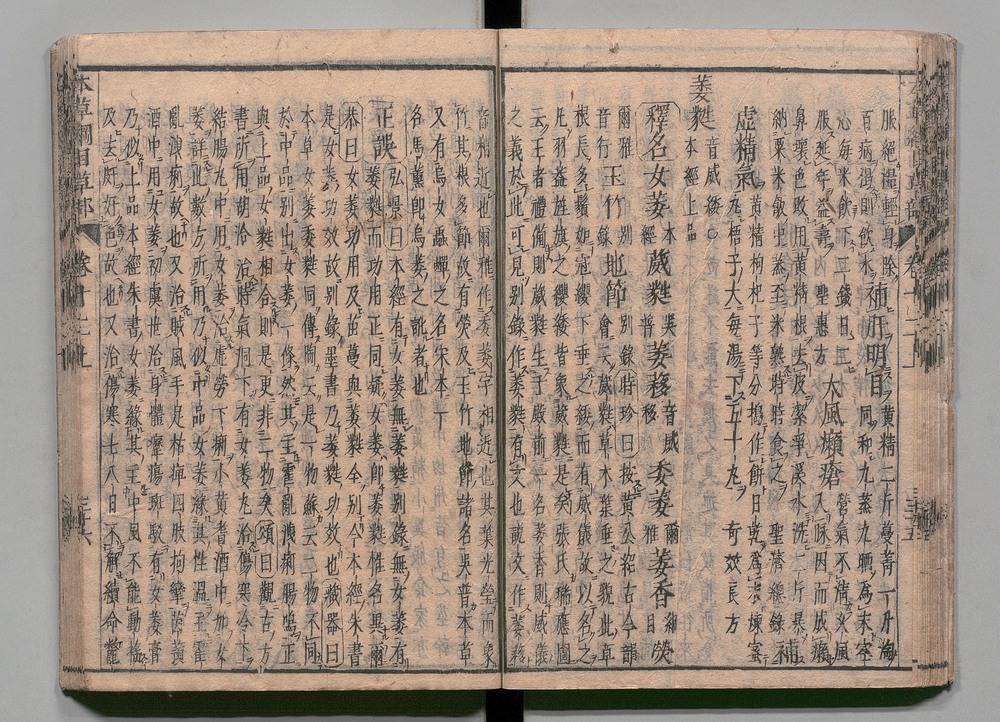 服絕穀輕身除
百病渴則飲水
補肝明目
黃精二斤蔓菁一升淘
同和九蒸九晒為末空
心每米飲下二錢日二
服延年益壽 聖惠方
大風癩瘡
營氣不清久風
入脉因而成癩
鼻壞色敗用黃精根去皮潔淨溪水洗二斤暴
納粟米飯中蒸至米熟時時食之 聖濟總錄
補虛精氣
黃精枸杞子等分搗作餅日乾為末煉蜜
丸梧子大每湯下五十丸 奇效良方
萎蕤
音威綏
本經上品
釋名
女萎
本經
葳蕤
吳普
萎𦸣
音威移
委萎
爾雅
萎香
綱目
熒
爾雅
玉竹
別錄
地節
別錄
時珍曰按黃公紹古今韻
會云葳蕤草木葉垂之貌此草
根長多鬚如冠纓下垂之緌而有威儀故以名之
凡羽蓋旌旗之纓緌皆象葳蕤是矣張氏瑞應圖
云王者禮備則葳蕤生于殿前一名萎香則威儀
之義於此可見別錄作萎蕤省文也說文作萎𦸣
音相近也爾雅作委萎字相近也其葉光瑩而象
竹其根多節故有熒及玉竹地節諸名吳普本草
又有烏女蟲蟬之名宋本一
名馬薰即烏萎之訛者也
正誤
弘景曰本經有女萎無萎蕤別錄無女萎有
萎蕤而功用正同疑女萎即萎蕤惟名異爾
恭曰女萎功用及苗蔓與萎蕤全別今本經朱書
是女萎功效故別錄墨書乃萎蕤功效也藏器曰
本草女萎萎蕤同傳陶云是一物蘇云二物不同
於中品別出女萎一條然其主霍亂洩痢腸鳴正
與上品女蕤相合則是更非二物矣頌曰觀古方
書所用胡洽治時氣洞下有女萎丸治傷寒冷下
結腸丸中用女萎治虛勞下痢小黃耆酒中加女
萎詳此數方所用乃似中品女萎緣其性溫主霍
亂洩痢故也又治賊風手足枯痺四肢拘攣茵蕷
酒中用女萎初虞世治身體癧瘍斑駁有女萎膏
乃似上品本經朱書女萎緣其主中風不能動搖
及去皯好色故也又治傷寒七八日不解續命鱉